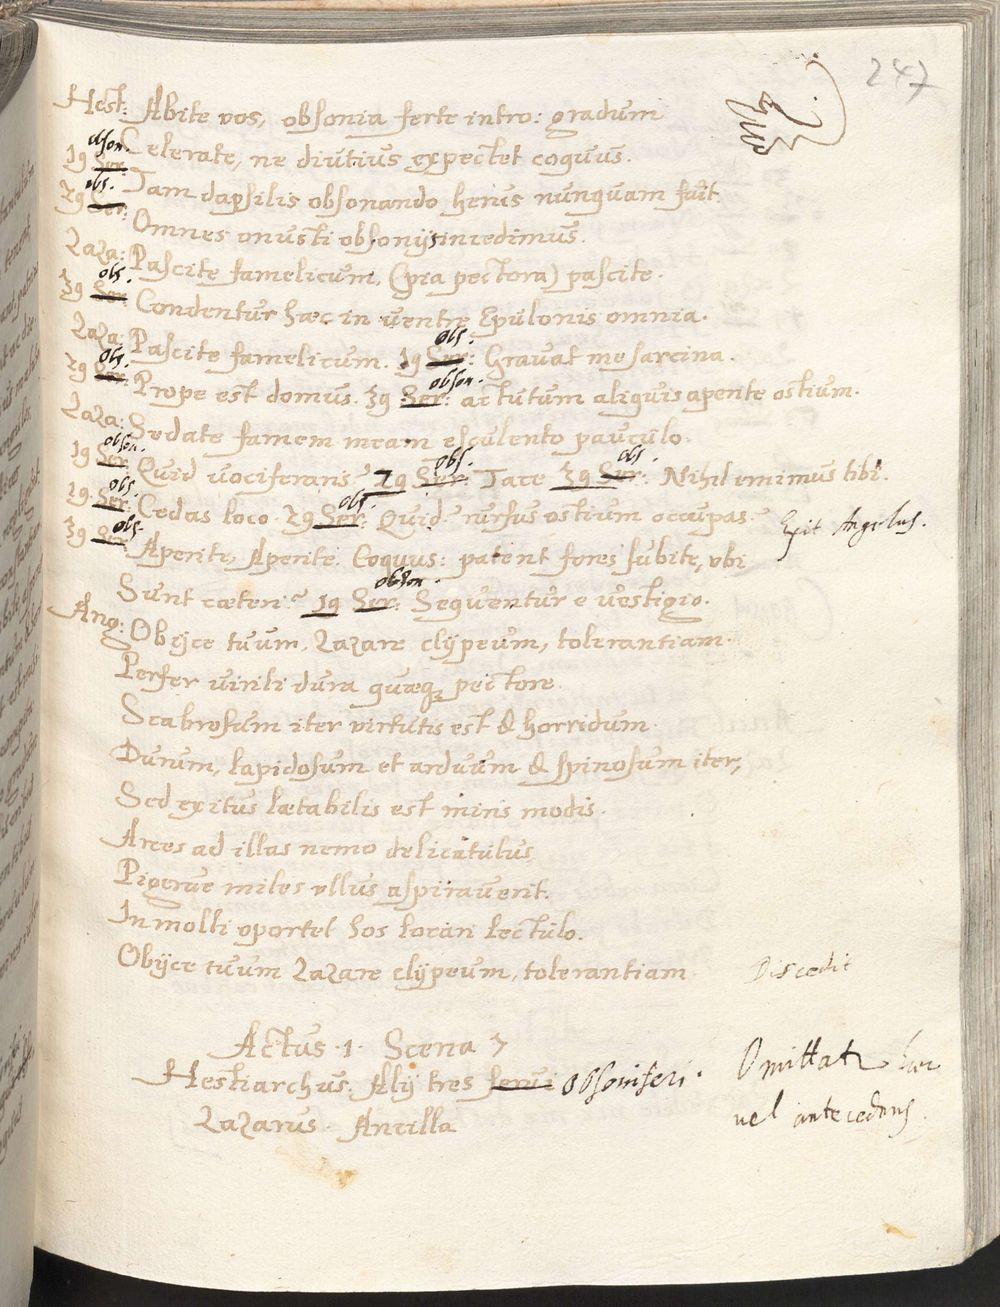 247
Hest: Abite vos, obsonia ferte intro: gradum
obson.
Celerate, ne diutius expectet coquus.
19 Ser: obs. Iam dapsilis obsonando herus nunquam fuit.
29 Ser: Omnes onusti obsonijs incedimus.
Laza: Pascite famelicum, (pia pectora) pascite.
obs.
39 Ser: Condentur hæc in ventre Epulonis omnia.
Laza: Pascite famelicum. 19 Ser: obs. Gravat me sarcina.
obs.
29 Ser: Prope est domus. 39 Ser: obson. actutum aliquis aperite ostium.
Laza: Sedate famem meam esculento pauculo.
obson.
19 Ser: Quid vociferaris? 29 Ser: obs. Tace 39 Ser: obs. Nihil emimus tibi.
obs.
19 Ser: Cedas loco. 29 Ser: obs. Quid rursus ostium occupas. Exit Angelus.
obs.
39 Ser: Aperite, Aperite. Coquus: patent fores subite, ubi
Sunt cæteri? 19 Ser: obson. Sequentur e vestigio.
Ang: Obijce tuum, Lazare clijpeum, tolerantiam.
Perfer virili dura quæq; pectore.
Scabrosum iter virtutis est & horridum
Durum, lapidosum et arduum & spinosum iter,
Sed exitus lætabilis est miris modis.
Arces ad illas nemo delicatulus,
Pigerve miles ullus aspiraverit.
In molli oportet hos locari lectulo.
Obijce tuum Lazare clijpeum, tolerantiam Discedit
Actus 1. Scena 7
Hestiarchus. Alij tres serui obsoniferi. Omittat
Lazarus. Ancilla vel antecedens.